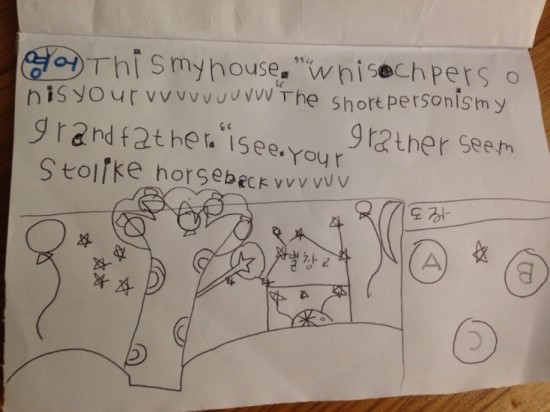 영어 Thismyhouse."“whisochpers o
nisyour vvvvvvvvv “The shortpersonismy
grandfather.“isee.your grather seem
Stolike horseback vvvvvv
별창고
A
B
C